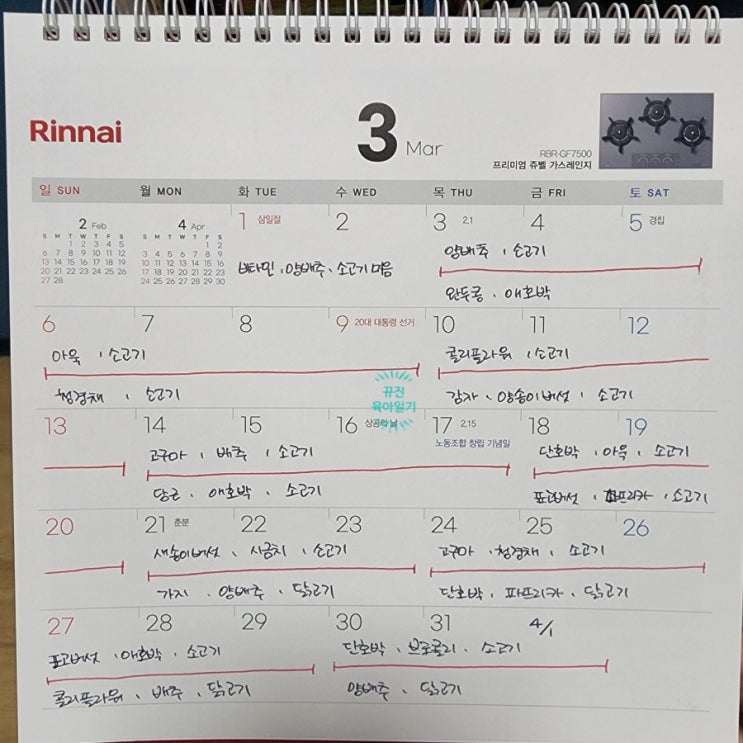 Rinnai
3 Mar
RBR-GF7500
프리미엄 쥬벨 가스레인지
일 SUN 월 MON 화 TUE 수 WED 목 THU 금 FRI 토 SAT
2 Feb 4 Apr
S M T W T F S S M T W T F S
1 2 3 4 5 1 2
6 7 8 9 10 11 12 3 4 5 6 7 8 9
13 14 15 16 17 18 19 10 11 12 13 14 15 16
20 21 22 23 24 25 26 17 18 19 20 21 22 23
27 28 24 25 26 27 28 29 30
1 삼일절 2 3 2.1 4 5 경칩
비타민, 양배추, 소고기 미음
양배추, 소고기
완두콩, 애호박
6 7 8 9 20대 대통령 선거 10 11 12
아욱, 소고기
콜리플라워, 소고기
청경채, 소고기
감자, 양송이버섯, 소고기
뀨진
육아일기
13 14 15 16 상공의 날 17 2.15 18 19
노동조합 창립 기념일
고구마, 배추, 소고기
단호박, 아욱, 소고기
당근, 애호박, 소고기
표고버섯, 파프리카, 소고기
20 21 춘분 22 23 24 25 26
새송이버섯, 시금치, 소고기
고구마, 청경채, 소고기
가지, 양배추, 닭고기
단호박, 파프리카, 닭고기
27 28 29 30 31 4/1
표고버섯, 애호박, 소고기
단호박, 브로콜리, 소고기
콜리플라워, 배추, 닭고기
양배추, 닭고기